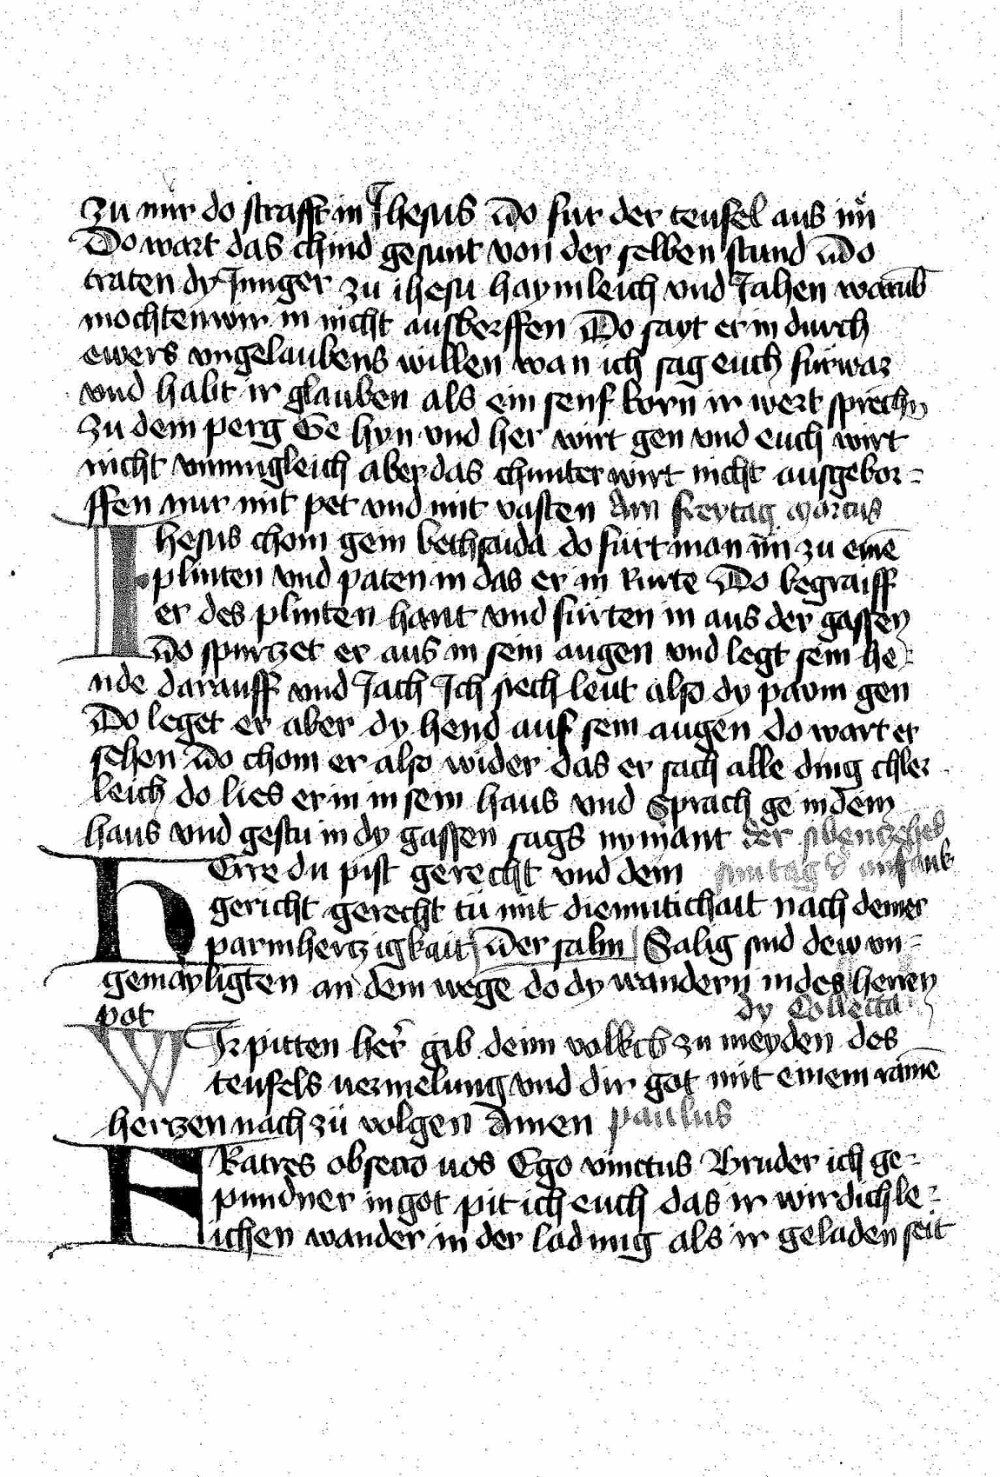 zu mir do strafft in Jhesus vnd do fur der teufel aus im
Do wart das chind gesunt von der selben stund do
traten dy Junger zu ihesu haymleich vnd Jahen warub̄
mochten wir in nicht ausberffen Do sayt er in durch
ewers vngelaubens willen wan ich sag euch furwar
vnd habt ir glauben als ein senf korn ir wert sprechn
zu dem perg Ge hyn vnd her wirt gen vnd euch wirt
nicht vnmugleich aber das chunter wirt nicht ausgebor=
ffen nur mit pet vnd mit vasten Am freytag Marcus
Ihesus chom gem bethsaida do furt man im zu eine̅
plinten vnd paten in das er in rurte Do begraiff
er des plinten hant vnd furten in aus der gassen
do spurtzet er aus in sein augen vnd legt sein he=
nde darauff vnd Jach Ich siech leut also dy pawm gen
Do leget er aber dy hend auf sein augen do wart er
sehen do chom er also wider das er sach alle ding chler
leich do lies er in in sein haus vnd sprach ge in dein
haus vnd gestu in dy gassen sags nymant der sibentzehet
Herre du pist gerecht vnd dein suntag d anfank
gericht gerecht tu mit diemutichait nach deiner
parmhertzigkait der salm Salig sind dew vn=
gemayligten an dem wege do dy wandern in des herren
pot dy Collecta
WIr pitten her gib deim volkch zu meyden des
teufels vermelung vnd dir got mit einem raine̅
hertzen nach zu volgen Amen paulus
FRatres obsecro uos Ego vinctus Bruder ich ge=
pundner in got pit ich euch das ir wirdichle=
ichen wander in der ladung als ir geladen seit